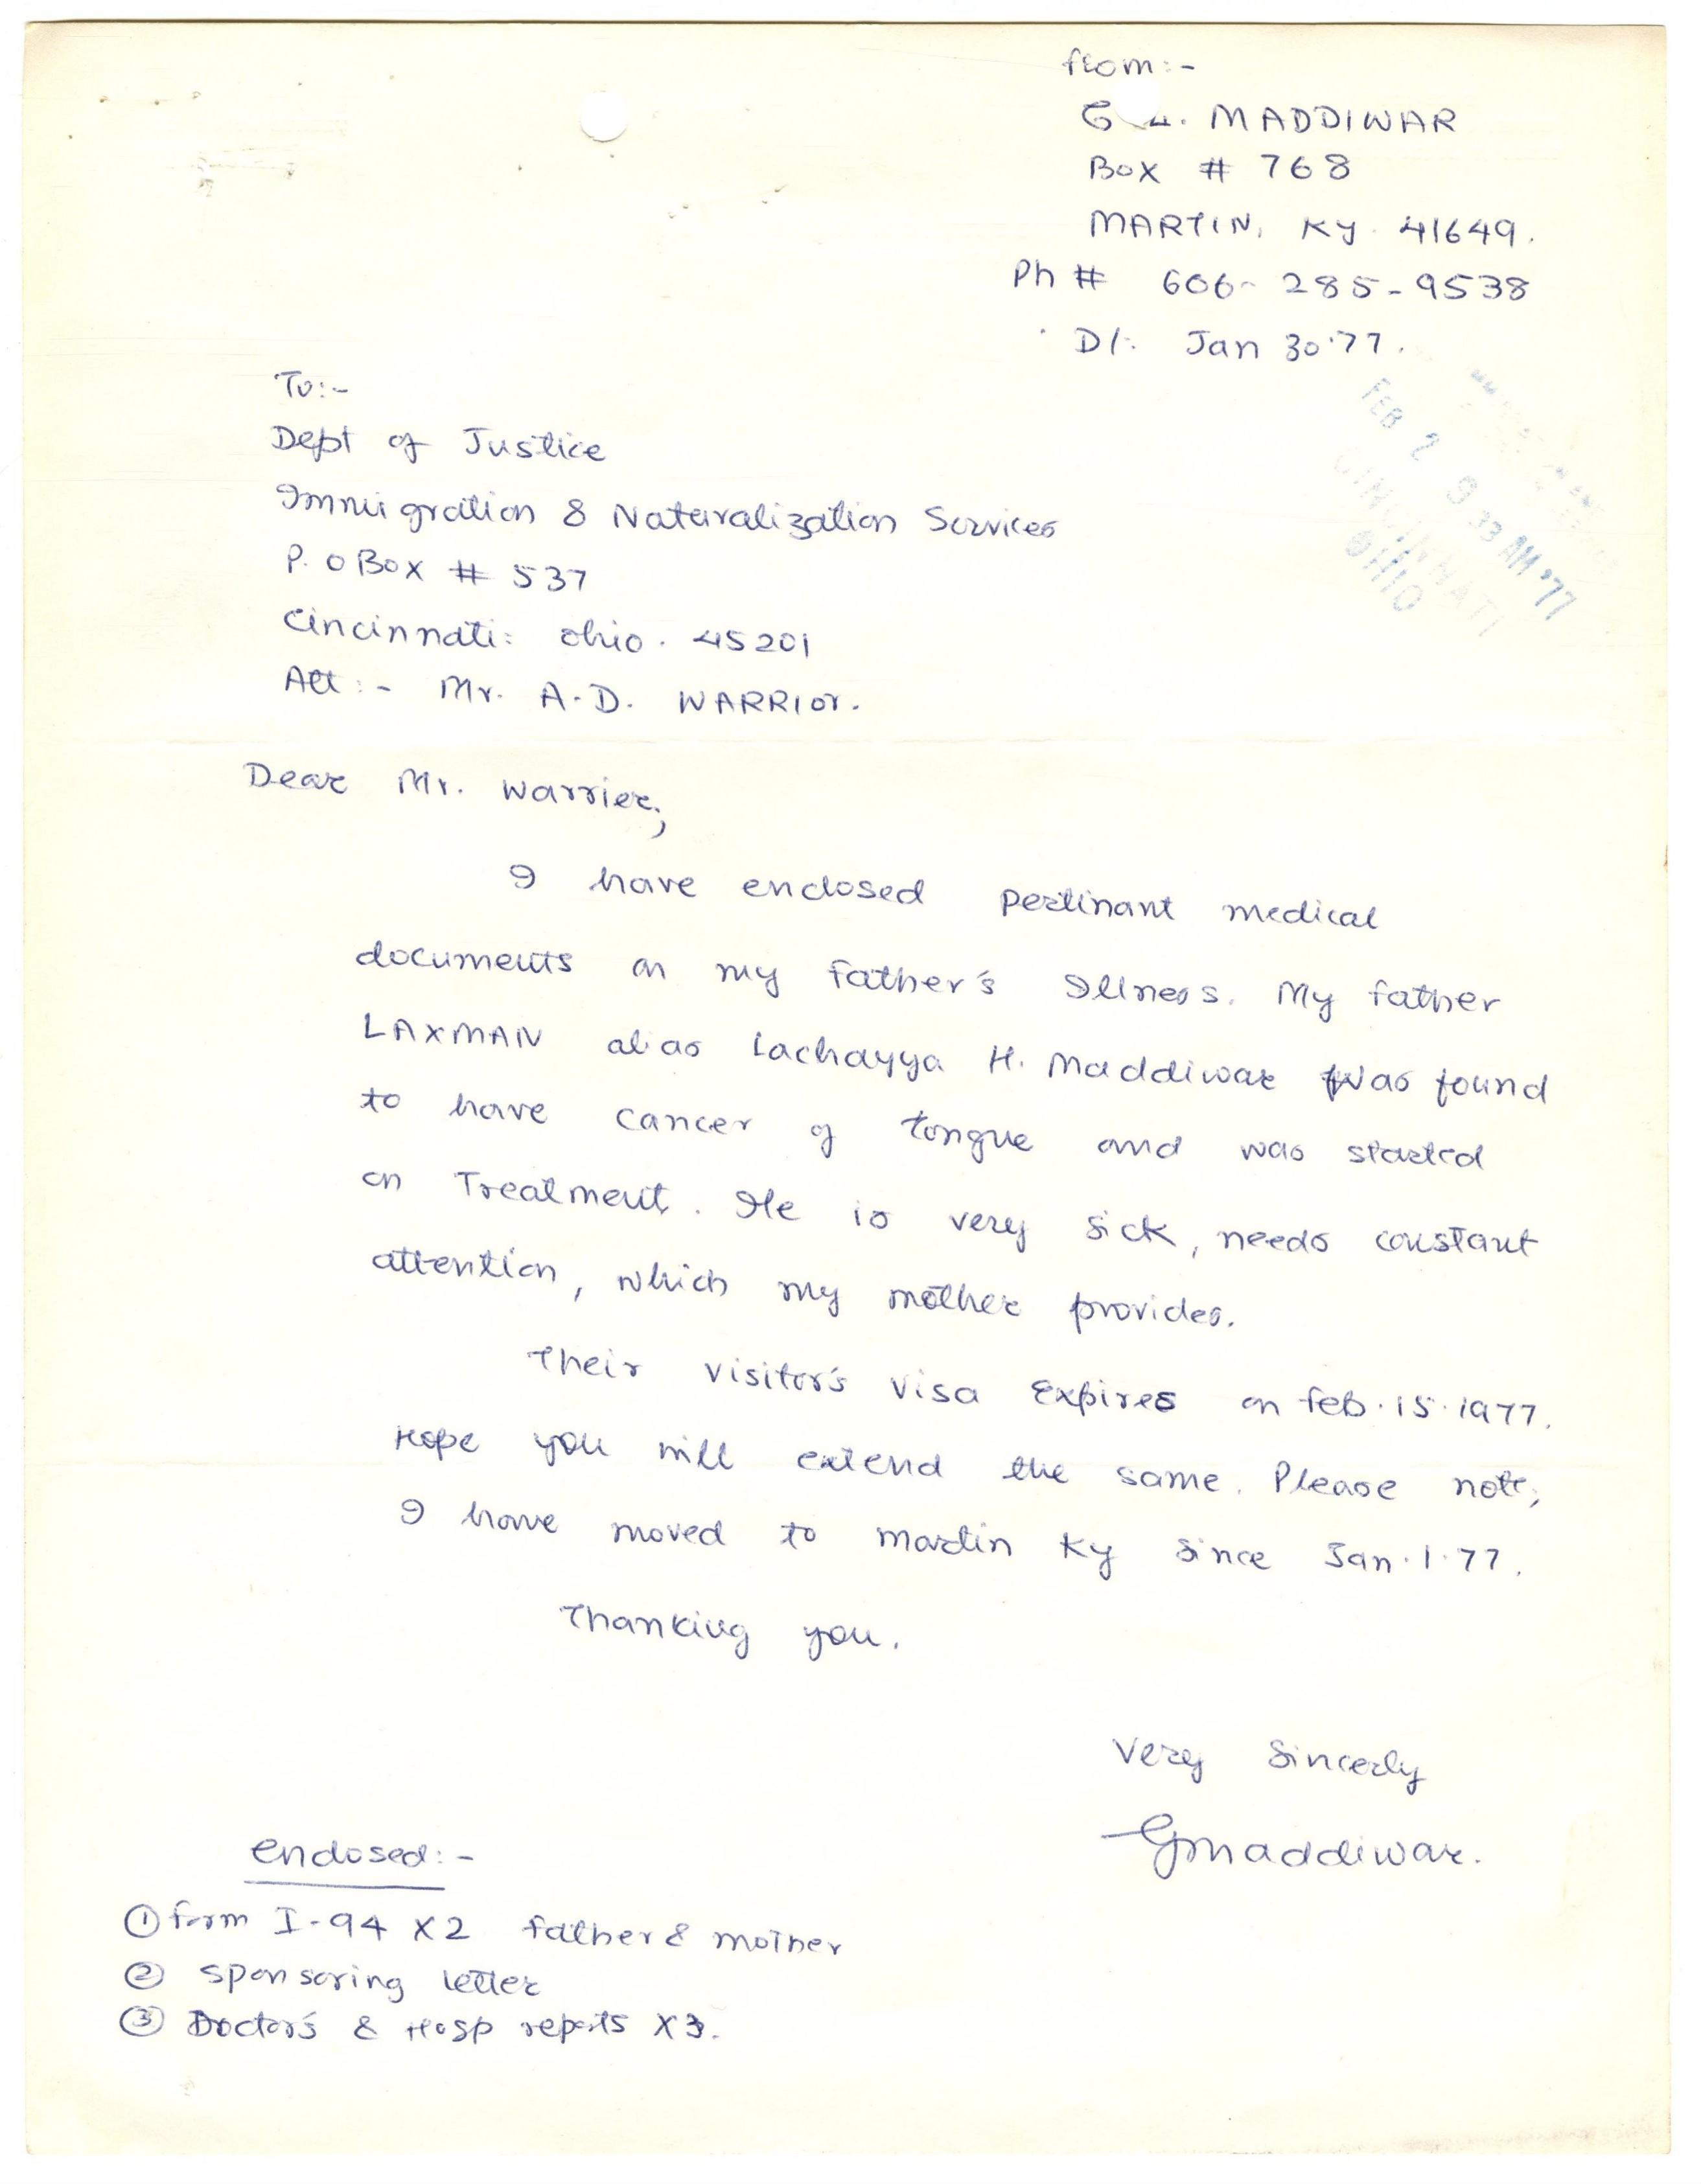 from:-
G L. MADDIWAR
Box # 768
MARTIN, Ky. 41649.
Ph # 606-285-9538
D/: Jan 30.77.
FEB 2 9 33 AM '77
CINCINNATI
OHIO
To:-
Dept of Justice
Immigration & Naturalization Services
P.O Box # 537
Cincinnati: Ohio. 45201
Att:- Mr. A.D. WARRIOr.
Dear Mr. Warrier,
I have enclosed pertinant medical
documents on my father's Illness. My father
LAXMAN alias Lachayya H. Maddiwar Was found
to have cancer of tongue and was started
on Treatment. He is very sick, needs constant
attention, which my mother provides.
Their visitor's visa Expires on feb.15.1977.
Hope you will extend the same. Please note,
I have moved to Martin Ky since Jan.1.77.
Thanking you.
Very Sincerly
GMaddiwar.
enclosed:-
① form I-94 X2 father & mother
② sponsoring letter
③ Doctor's & Hosp reports X3.